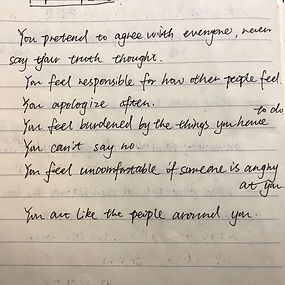 You pretend to agree with everyone, never
say your truth thought.
You feel responsible for how other people feel
You apologize often.
You feel burdened by the things you have to do
You can't say no.
You feel uncomfortable if someone is angry
at you.
You act like the people around you.